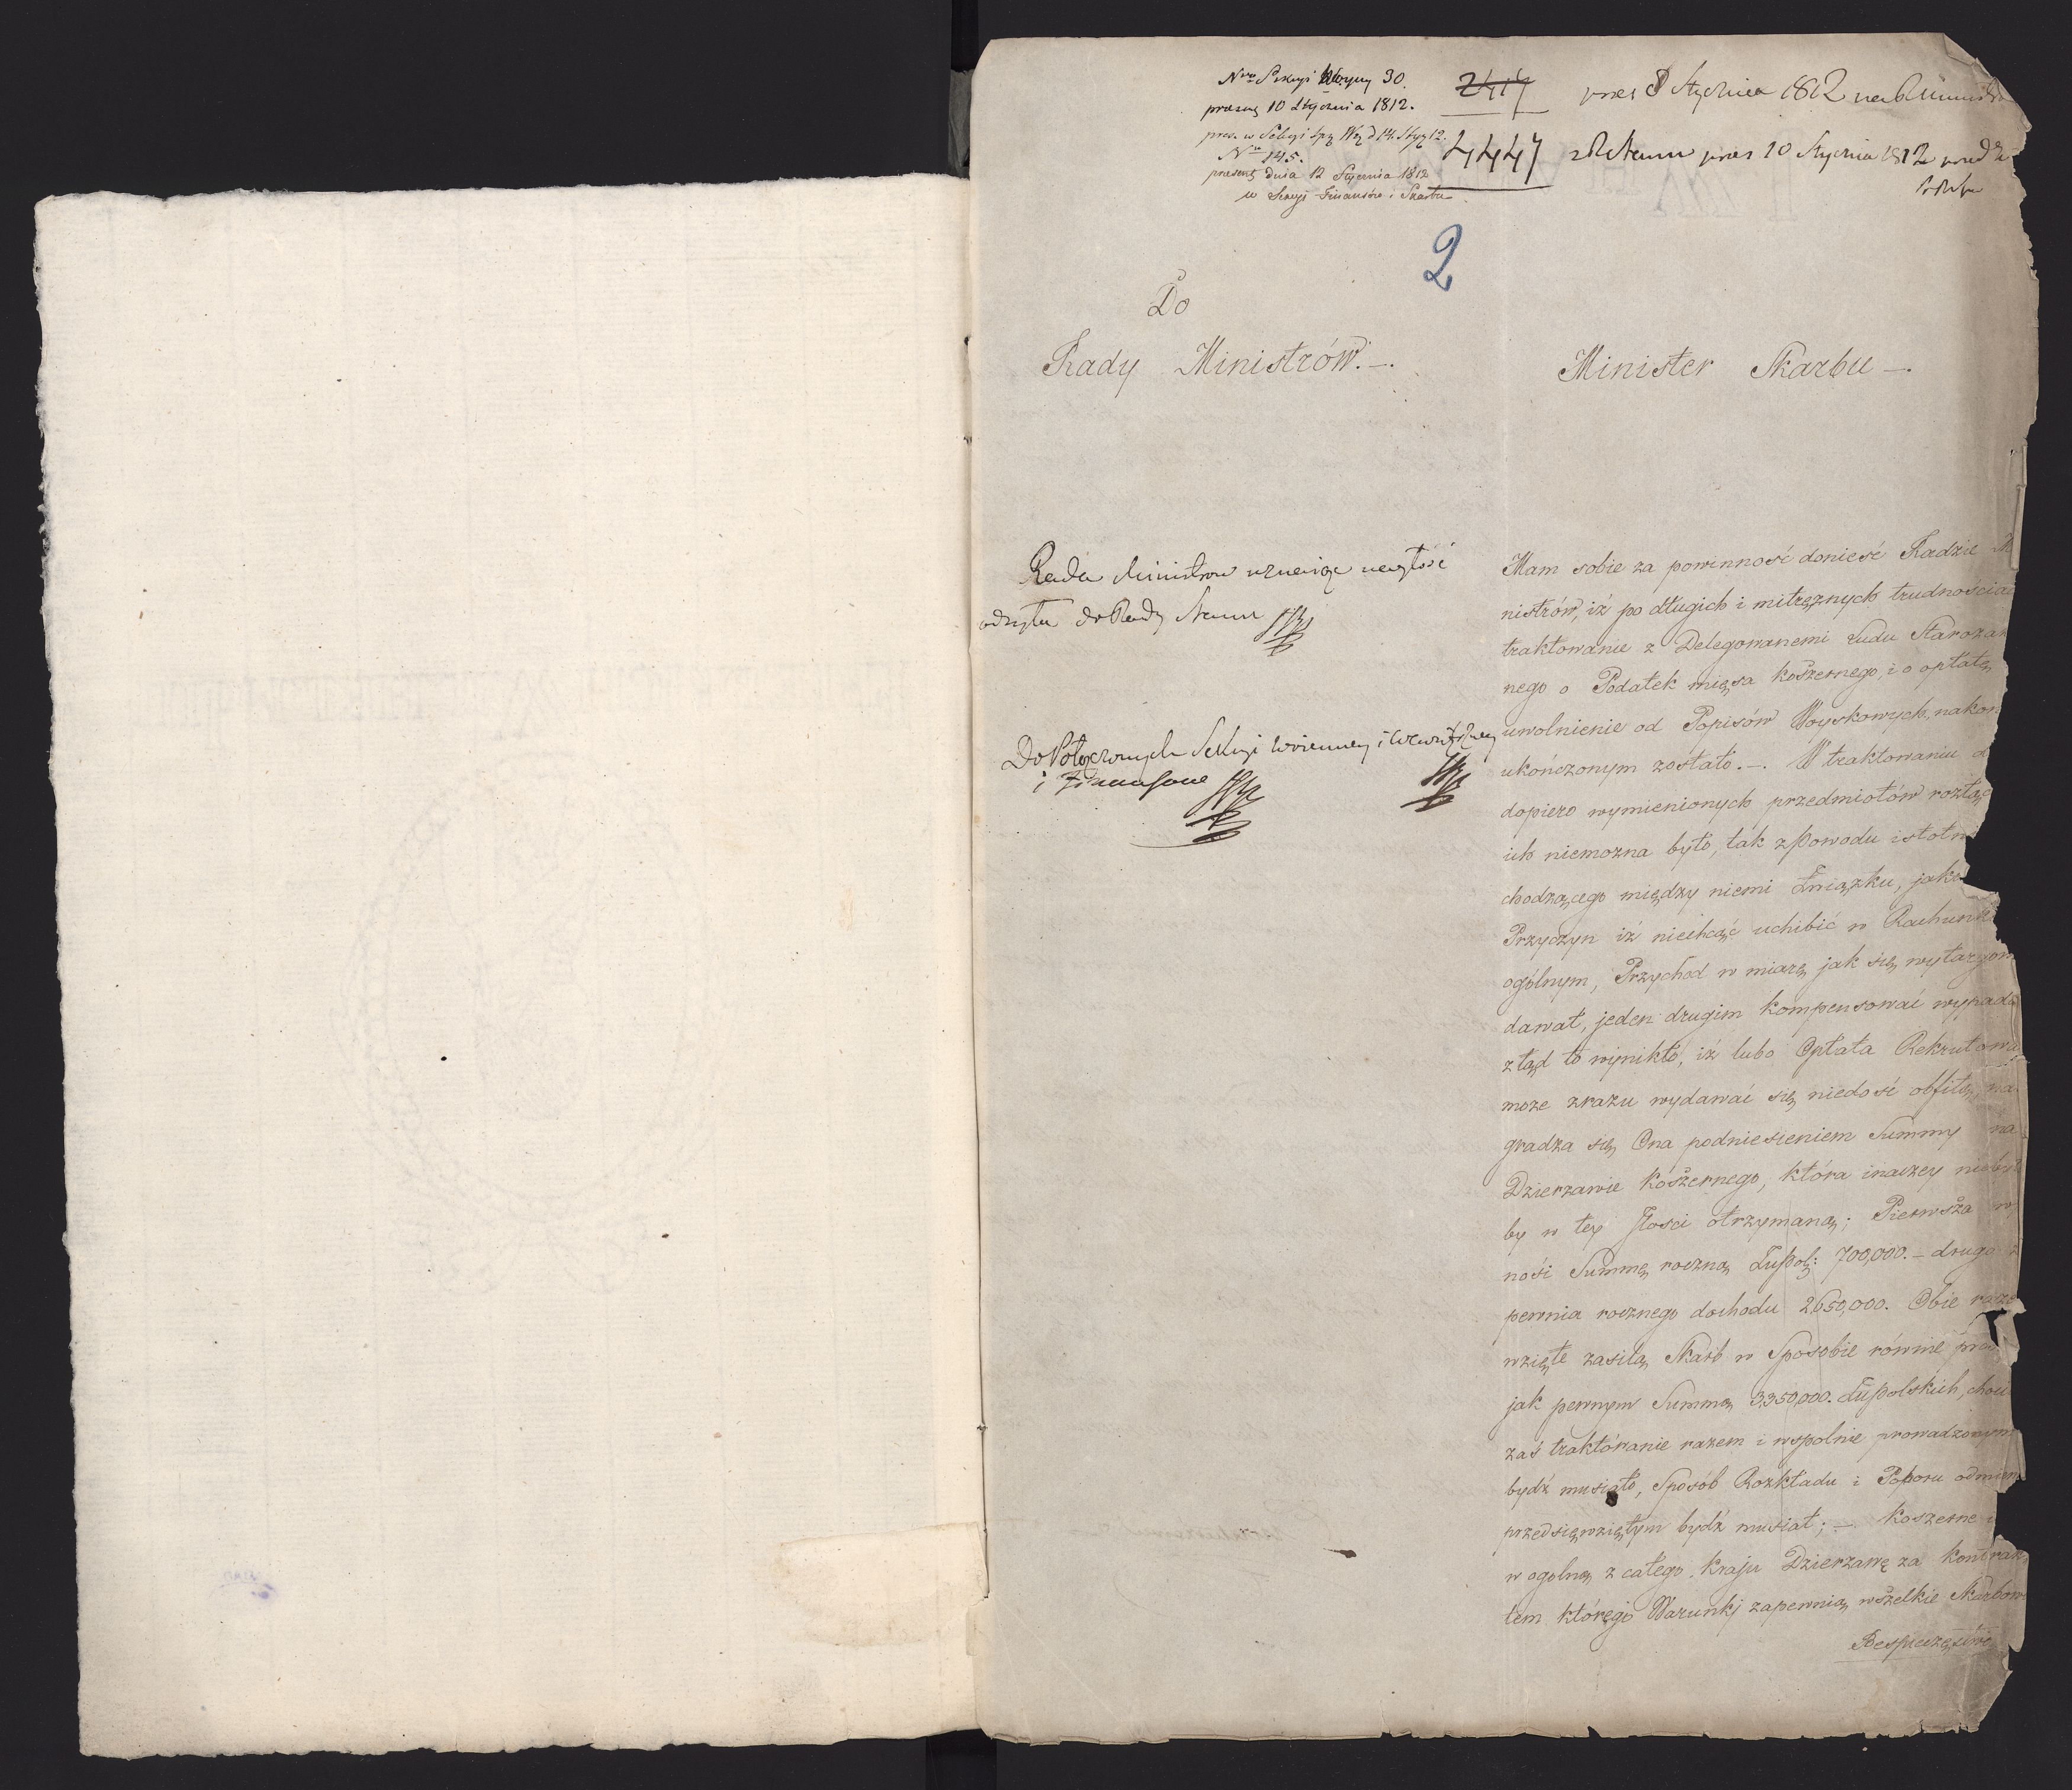 Nro Sekcyi Woyny 30.
praezen 10 Stycznia 1812.
prez. w Sekcyi Spr. We. d 14. Stycz 12.
Nro 145.
praesent dnia 12 Stycznia 1812
w Sekcyi Finansów i Skarbu
2417
4447
prez 8 Stycznia 1812 na
prez 10 Stycznia 1812
2
Do
Rady Ministrów.—.
Minister Skarbu —.
Rada Ministrow uznaiąc nagłość
odsyła do Rady Stanu
Do Połączonych Sekcyi Woienney i Wewnętrzney
i Finansowe
Mam sobie za powinność donieść Radzie Mi
nistrów, iż po długich i mitrężnych trudnościac
traktowanie z Delegowanemi Ludu Starozakon
nego o Podatek mięsa koszernego, i o opłatę
uwolnienie od Popisów Woyskowych, nakon
ukończonym zostało.—. W traktowaniu
dopiero wymienionych przedmiotów rozłącz
ich niemozna było, tak z Powodu istotn
chodzącego między niemi Związku, jako
Przyczyn iż niechcąć uchibić w Rachunk
ogólnym, Przychod w miarę jak się wytargow
dawał, jeden drugim kompensować wypada
ztąd to wynikło, iż lubo Opłata Rekrutowa
moze zrazu wydawać się niedość obfitą, na
gradza się Ona podniesieniem Summy na
Dzierzawie Koszernego, która inaczey niebyła
by w tey Jlości otrzymaną; Pierwsza wy
nosi Summę roczną Złupol: 700,000.— druga za
pewnia rocznego dochodu 2,650,000. Obie raze
wzięte zasilą Skarb w Sposobie równie
jak pewnym Summą 3,350,000. Złłpolskich, choci
zaś traktowanie razem i wspolnie prowadzonym
bydź musiało, Sposób Rozkładu i Poboru odmien
przedsięwziętym bydź musiał; — Koszerne
w ogolną z całego Kraju Dzierzawę za Kontrak
tem którego Warunki zapewnią wszelkie Skarbow
Bespieczęstwo